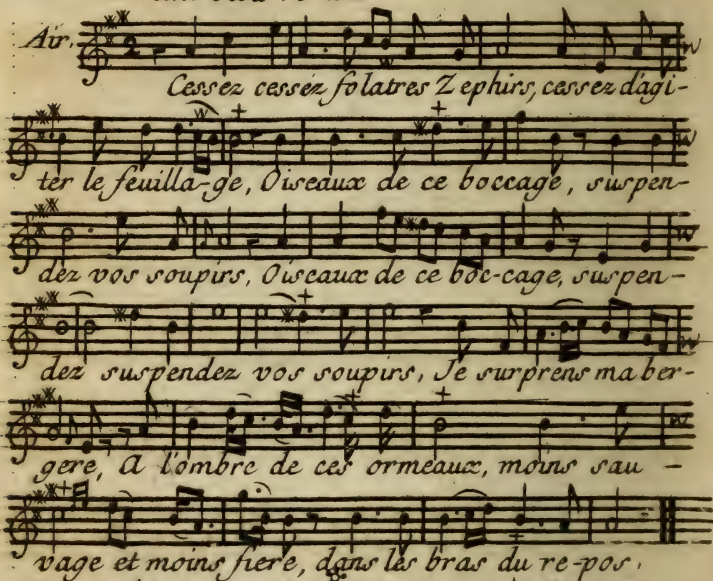 Air.
Cessez cessez folatres Zephirs, cessez d'agi-
ter le feuilla-ge, Oiseaux de ce boccage, suspen-
dez vos soupirs, Oiseaux de ce boc-cage, suspen-
dez suspendez vos soupirs, Je surprens ma ber-
gere, A l'ombre de ces ormeaux, moins sau-
vage et moins fiere, dans les bras du re-pos.